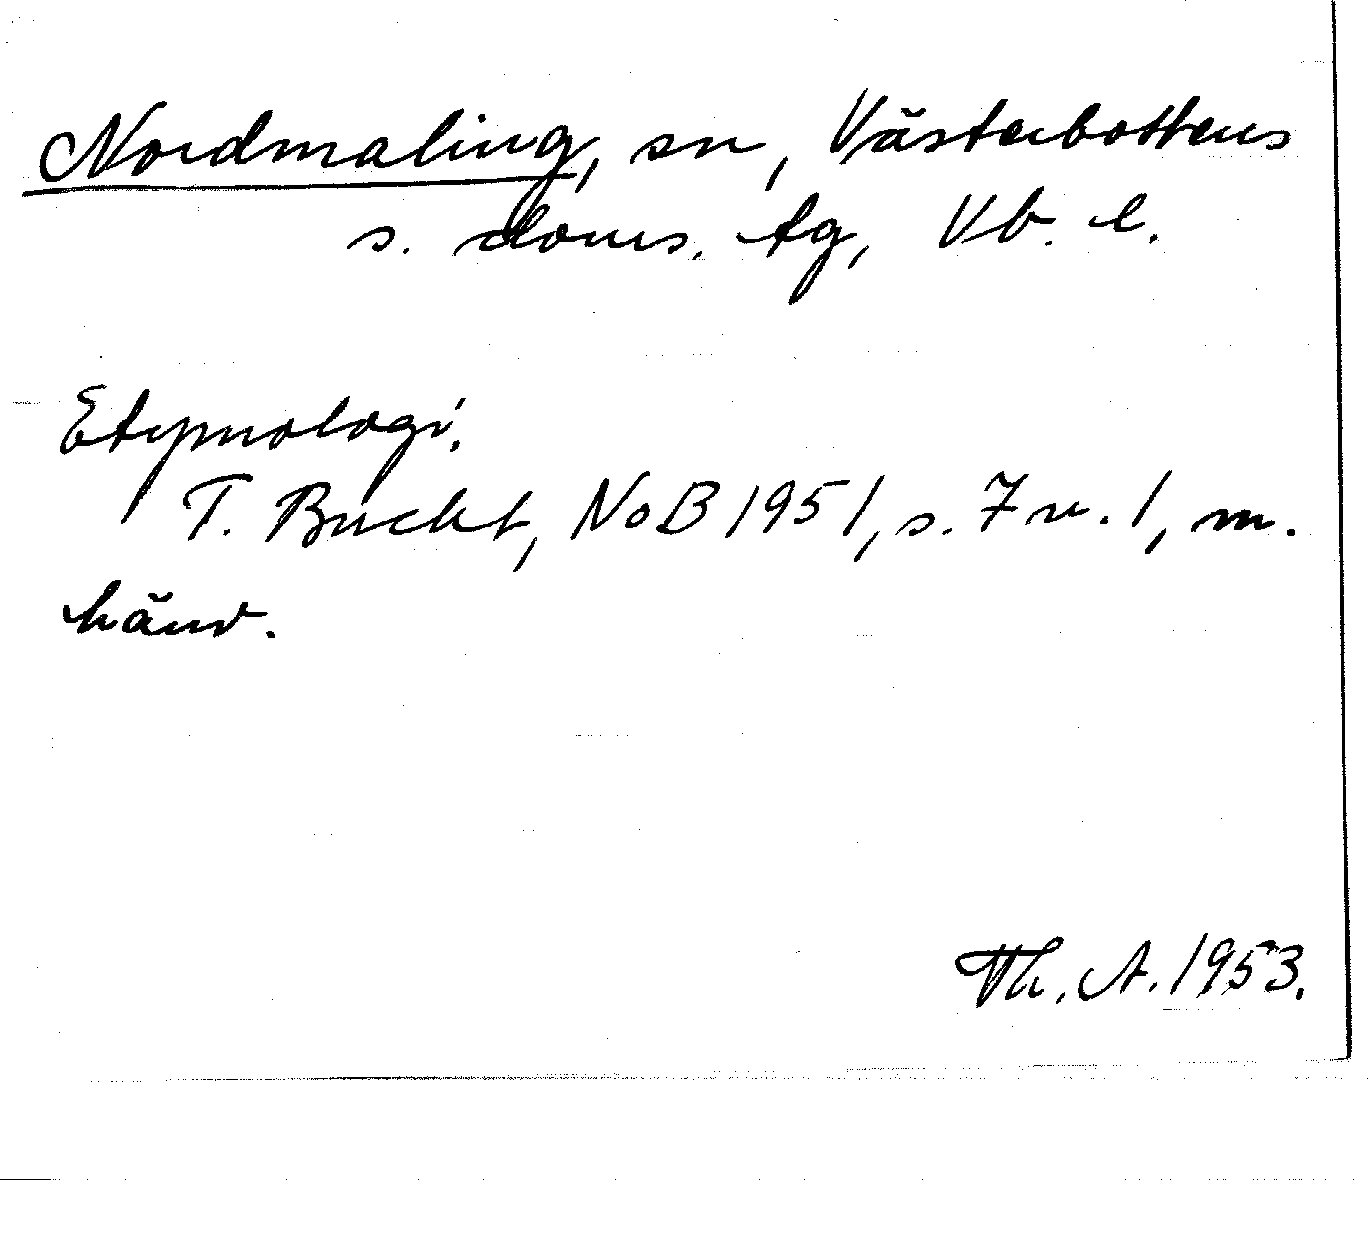 Nordmaling, sn, Västerbottens
s. doms. tg, Vb. l.
Etymologi.
T. Bucht, NoB 1951, s. 7 n. 1, m.
hänv.
Th. A. 1953.